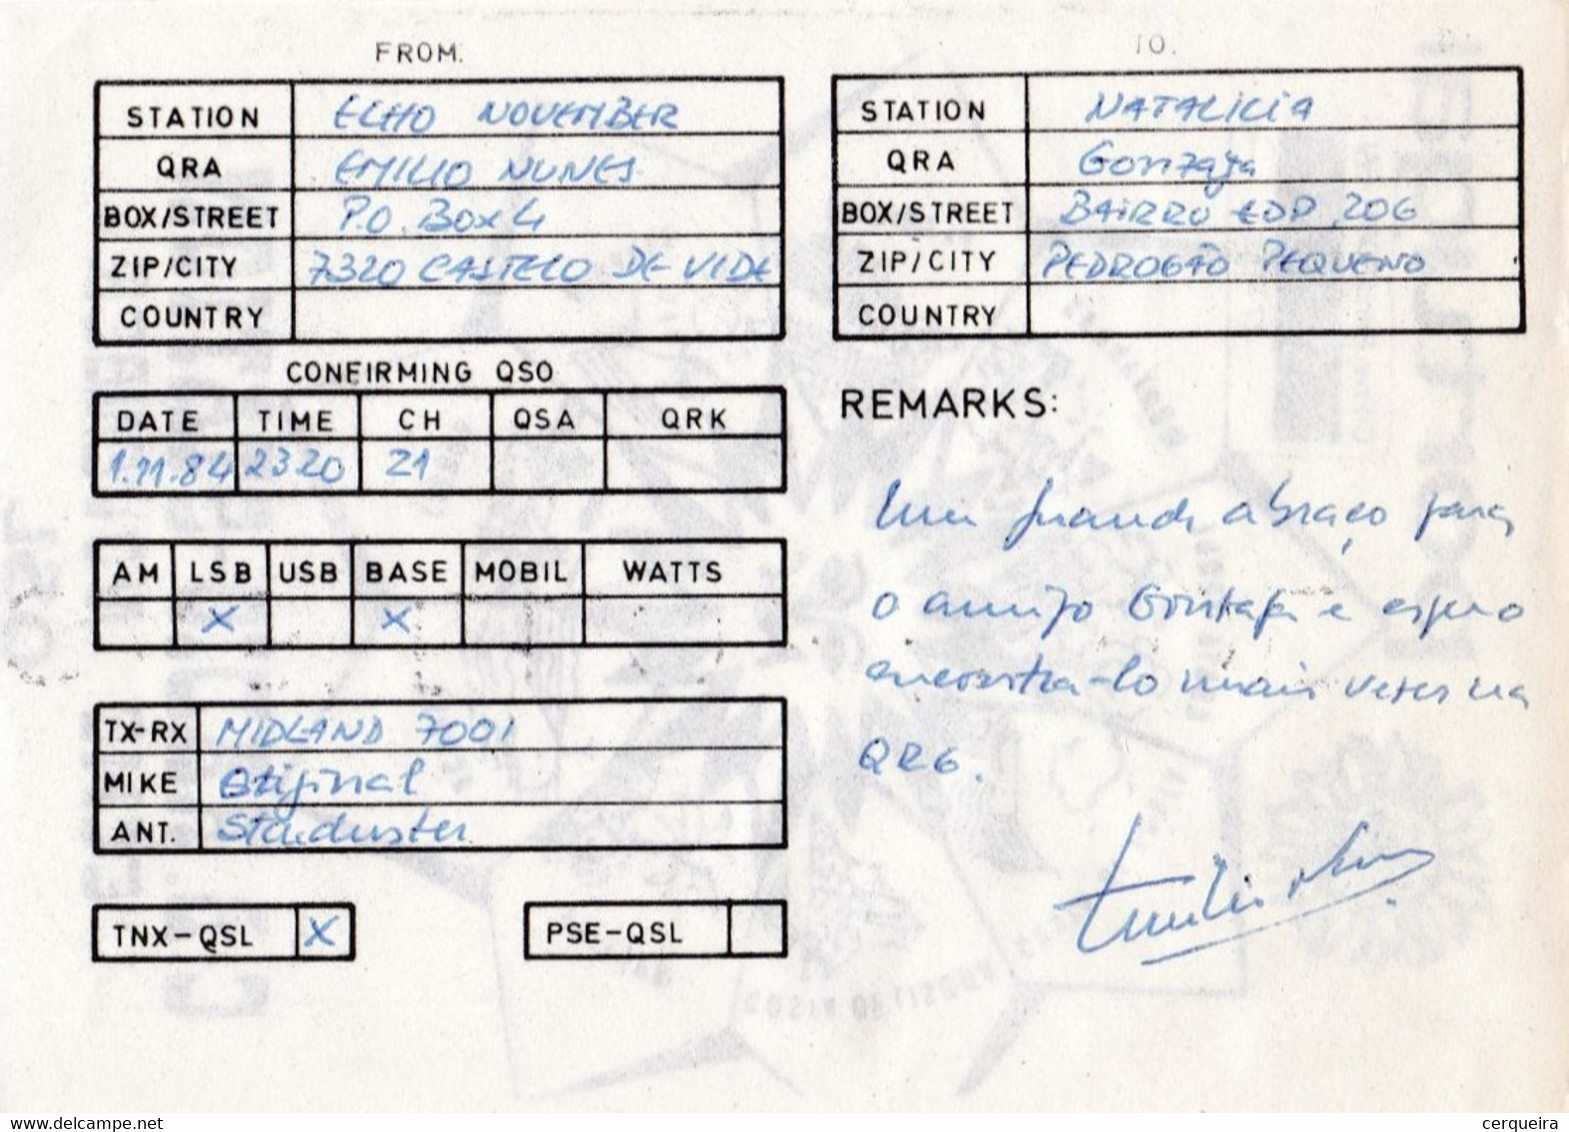 FROM:
STATION ECHO NOVEMBER
QRA EMILIO NUNES
BOX/STREET P.O. BOX 4
ZIP/CITY 7320 CASTELO DE VIDE
COUNTRY
TO.
STATION NATALICIA
QRA Gonzaga
BOX/STREET BAIRRO EDP 206
ZIP/CITY PEDROGÃO PEQUENO
COUNTRY
CONFIRMING QSO
DATE TIME CH QSA QRK
1.11.84 2320 21
AM LSB USB BASE MOBIL WATTS
X X
TX-RX MIDLAND 7001
MIKE Original
ANT. Starduster
TNX-QSL X
PSE-QSL
REMARKS:
Um grande abraço para
o amigo Gonzaga e espero
encontra-lo mais vezes na
QRG.
Emilio Nunes
www.delcampe.net
cerqueira